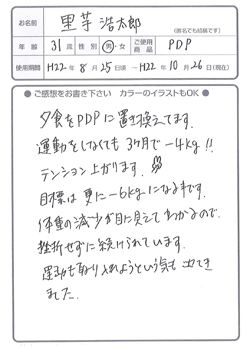 お名前 里芋 浩太郎
(匿名でも結構です)
年齢 31歳 性別 男・女 ご使用商品 PDP
使用期間 H22年8月25日頃 ~ H22年10月26日(現在)
●ご感想をお書き下さい カラーのイラストもOK●
夕食をPDPに置き換えてます。
運動をしなくても3ヶ月で-4kg!!
テンション上がります。
目標は更に-6kgになる事です。
体重の減少が目に見えてわかるので、
挫折せずに続けられています。
運動も取り入れようという気も出てき
ました。